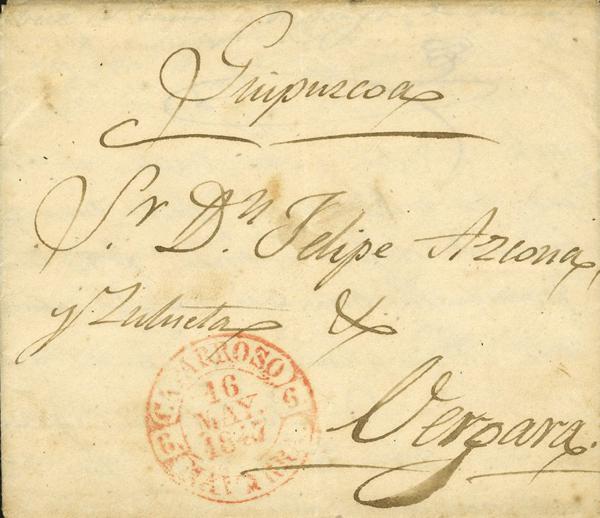 Guipuzcoa
Sr. Dn. Felipe Azcona
y Zulueta &
Vergara.
CAPARROSO
16
MAY.
1847
NAVARR